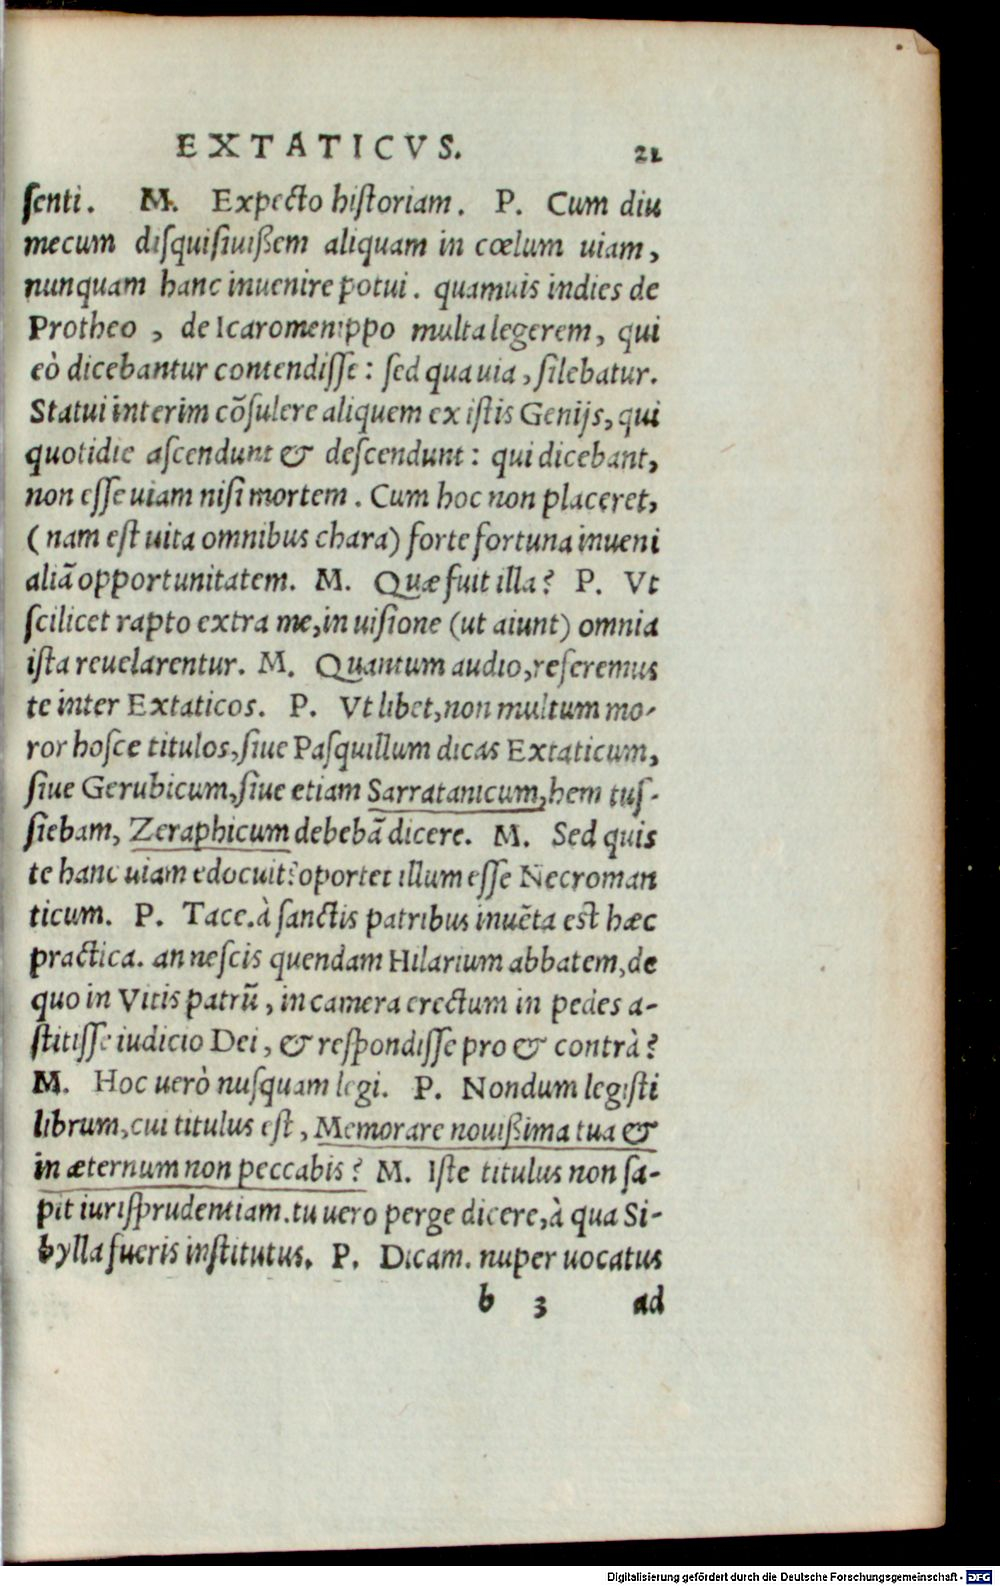 EXTATICVS. 21
ſenti. M. Expecto hiſtoriam. P. Cum diu
mecum diſquiſiuißem aliquam in cœlum uiam,
nunquam hanc inuenire potui. quamuis indies de
Protheo, de Icaromenippo multa legerem, qui
eò dicebantur contendiſſe: ſed qua uia, ſilebatur.
Statui interim cõſulere aliquem ex iſtis Genijs, qui
quotidie aſcendunt & deſcendunt: qui dicebant,
non eſſe uiam niſi mortem. Cum hoc non placeret,
(nam eſt uita omnibus chara) forte fortuna inueni
aliã opportunitatem. M. Quæ fuit illa? P. Vt
ſcilicet rapto extra me, in uiſione (ut aiunt) omnia
iſta reuelarentur. M. Quantum audio, referemus
te inter Extaticos. P. Vt libet, non multum mo-
ror hoſce titulos, ſiue Paſquillum dicas Extaticum,
ſiue Gerubicum, ſiue etiam Sarratanicum, hem tuſ-
ſiebam, Zeraphicum debebã dicere. M. Sed quis
te hanc uiam edocuit? oportet illum eſſe Necroman
ticum. P. Tace. à ſanctis patribus inuẽta est hæc
practica. an neſcis quendam Hilarium abbatem, de
quo in Vitis patrũ, in camera erectum in pedes a-
ſtitiſſe iudicio Dei, & reſpondiſſe pro & contrà?
M. Hoc uerò nuſquam legi. P. Nondum legiſti
librum, cui titulus eſt, Memorare nouißima tua &
in æternum non peccabis? M. Iſte titulus non ſa-
pit iuriſprudentiam. tu uero perge dicere, à qua Si-
bylla fueris inſtitutus. P. Dicam. nuper uocatus
b 3 ad
Digitalisierung gefördert durch die Deutsche Forschungsgemeinschaft - DFG